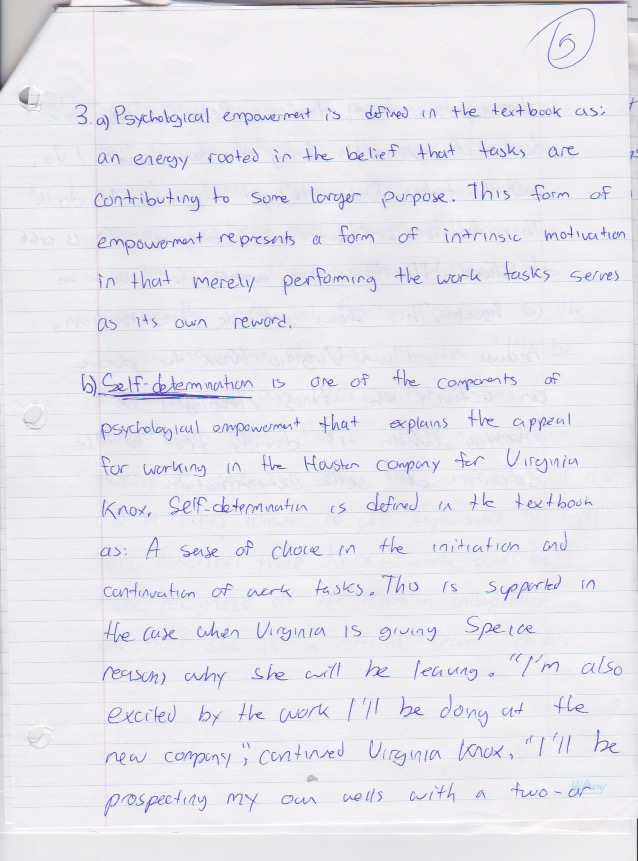 5
3. a) Psychological empowerment is defined in the textbook as:
an energy rooted in the belief that tasks are
contributing to some larger purpose. This form of
empowerment represents a form of intrinsic motivation
in that merely performing the work tasks serves
as its own reward.
b) Self-determination is one of the components of
psychological empowerment that explains the appeal
for working in the Houston company for Virginia
Knox. Self-determination is defined in the textbook
as: A sense of choice in the initiation and
continuation of work tasks. This is supported in
the case when Virginia is giving Speice
reasons why she will be leaving. "I'm also
excited by the work I'll be doing at the
new company", continued Virginia Knox. "I'll be
prospecting my own wells with a two-or